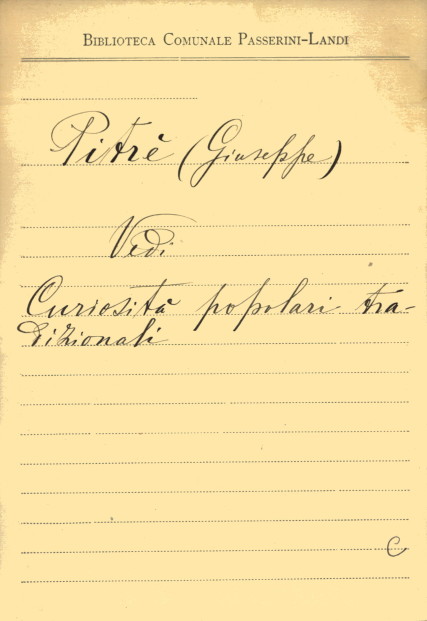 BIBLIOTECA COMUNALE PASSERINI-LANDI
Pitrè (Giuseppe)
Vedi
Curiosità popolari tra-
dizionali
C